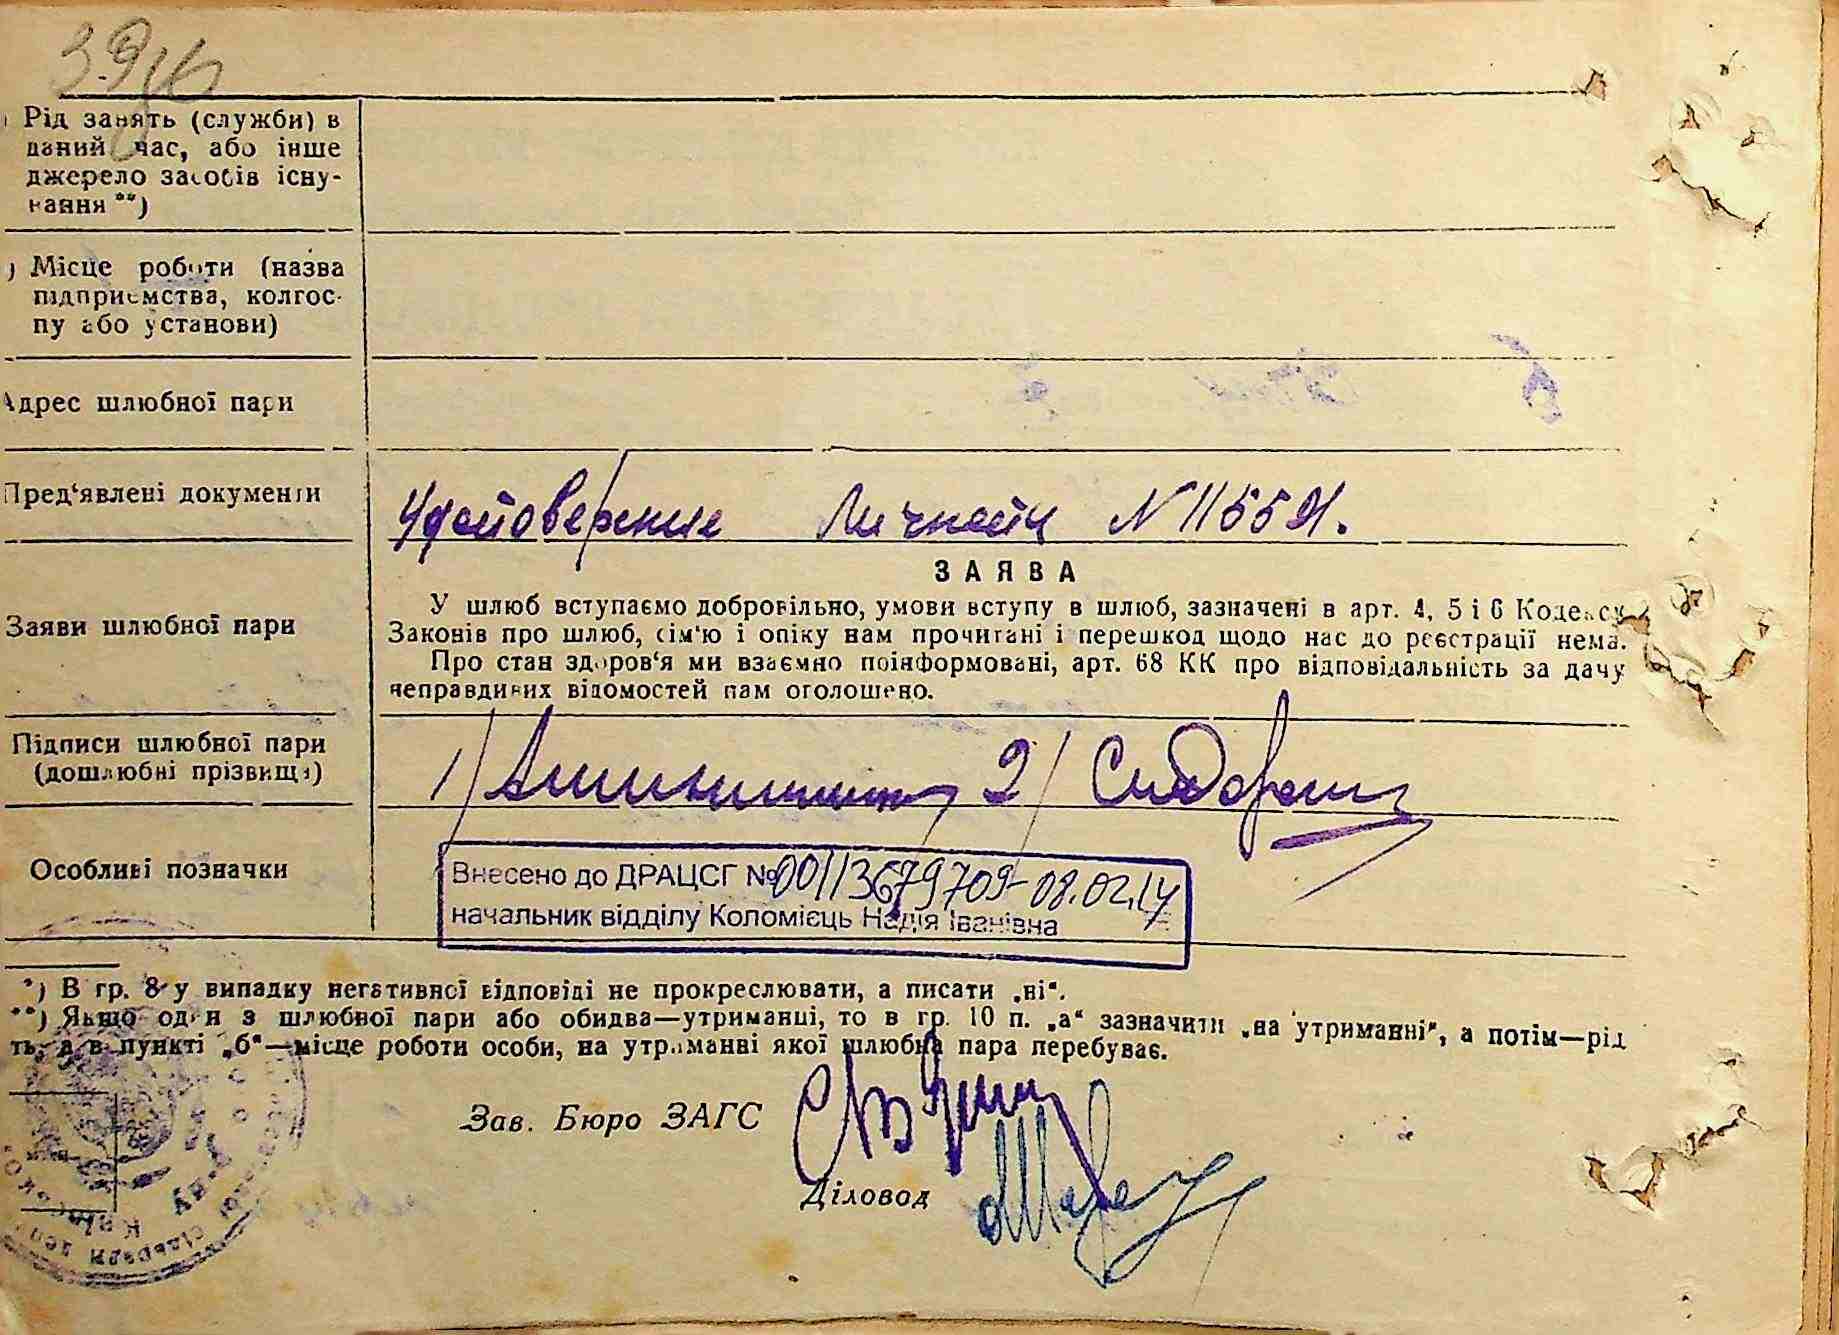 Рід занять (служби) в
даний час, або інше
джерело засобів існу-
вання **)
) Місце роботи (назва
підприємства, колгос-
пу або установи)
Адрес шлюбної пари
Пред'явлені документи
Удостоверение Личности N 11552
ЗАЯВА
Заяви шлюбної пари
У шлюб вступаємо добровільно, умови вступу в шлюб, зазначені в арт. 4, 5 і 6 Кодексу
Законів про шлюб, сім'ю і опіку нам прочитані і перешкод щодо нас до реєстрації нема.
Про стан здоров'я ми взаємно поінформовані, арт. 68 КК про відповідальність за дачу
неправдивих відомостей нам оголошено.
Підписи шлюбної пари
(дошлюбні прізвища)
1/ 2/
Особливі позначки
Внесено до ДРАЦСГ № 00113679709-08.02.14
начальник відділу Коломієць Надія Іванівна
*) В гр. 8 у випадку негативної відповіді не прокреслювати, а писати „ні“.
**) Якщо один з шлюбної пари або обидва—утриманці, то в гр. 10 п. „а“ зазначити „на утриманні“, а потім—рід
ть, а в пункті „б“—місце роботи особи, на утриманні якої шлюбна пара перебуває.
Зав. Бюро ЗАГС
Діловод